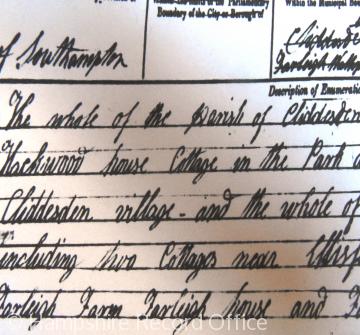 Boundary of the City or Borough of
Within the Municipal Bo
of Southampton
Farleigh
Description of Enumeratio
The whole of the Parish of Cliddesden
Hackwood house Cottage in the Park
Cliddesden village - and the whole of
including two Cottages near
Farleigh Farm Farleigh house and
Hampshire Record Office